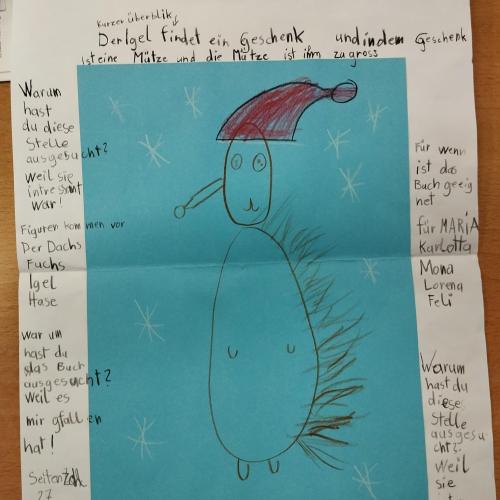 Kurzer überblik
Der Igel findet ein Geschenk und in dem Geschenk
ist eine Mütze und die Mütze ist ihm zu gross
Warum
hast
du diese
Stelle
ausgesucht?
weil sie
intressant
war!
Figuren kommen vor
Der Dachs
Fuchs
Igel
Hase
war um
hast du
das Buch
ausgesucht?
weil es
mir gfallen
hat!
Seitenzahl
27
Für wenn
ist das
Buch geeig
net
für MARiA
Karlotta
Mona
Lorena
Feli
Warum
hast du
diese
Stelle
ausgesu
cht?
Weil
sie